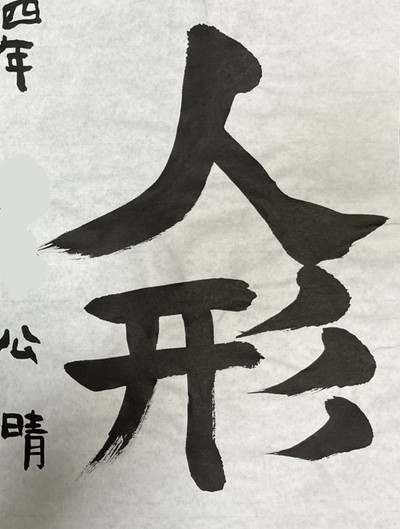 人形
四年 公晴